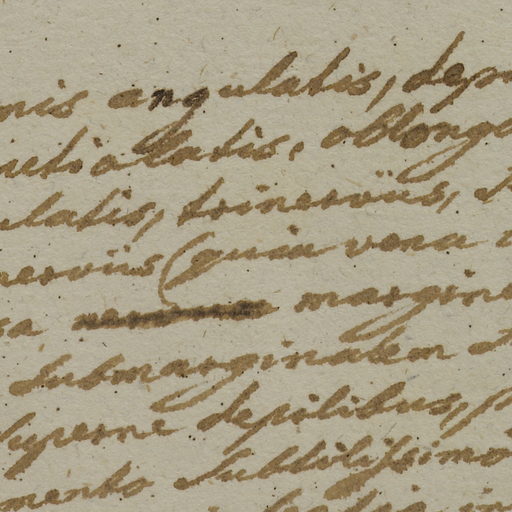 nis angulatis, dep
ucti alatis, oblong
ulatis, trinerviis,
nerviis (quia vena
sa margine
submarginalem
superne depilibus,
mento subtilissimo